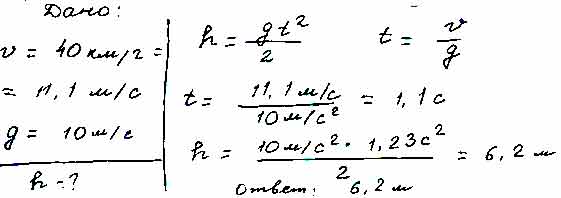 Дано:
v = 40 км/г =
= 11,1 м/с
g = 10 м/с
h - ?
h = gt²/2 t = v/g
t = 11,1 м/с / 10 м/с² = 1,1 с
h = 10 м/с² · 1,23 с² / 2 = 6,2 м
Ответ: 6,2 м